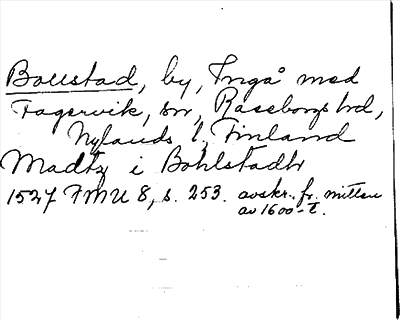 Bollstad, by, Ingå med
Fagervik, sn, Raseborgs hd,
Nylands l. Finland
Madtz i Bohlstadh
1527 FMU 8, s. 253. avskr. fr. mitten
av 1600-t.